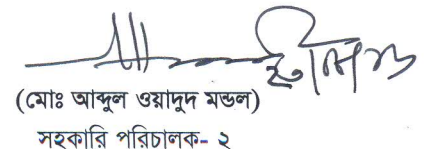 (মোঃ আব্দুল ওয়াদুদ মন্ডল)
সহকারি পরিচালক- ২